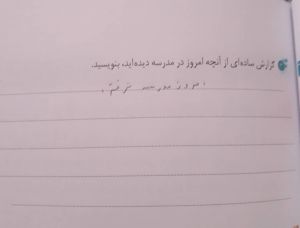 گزارش ساده‌ای از آنچه امروز در مدرسه دیده‌اید، بنویسید.
امروز مدرسه نرفتم.